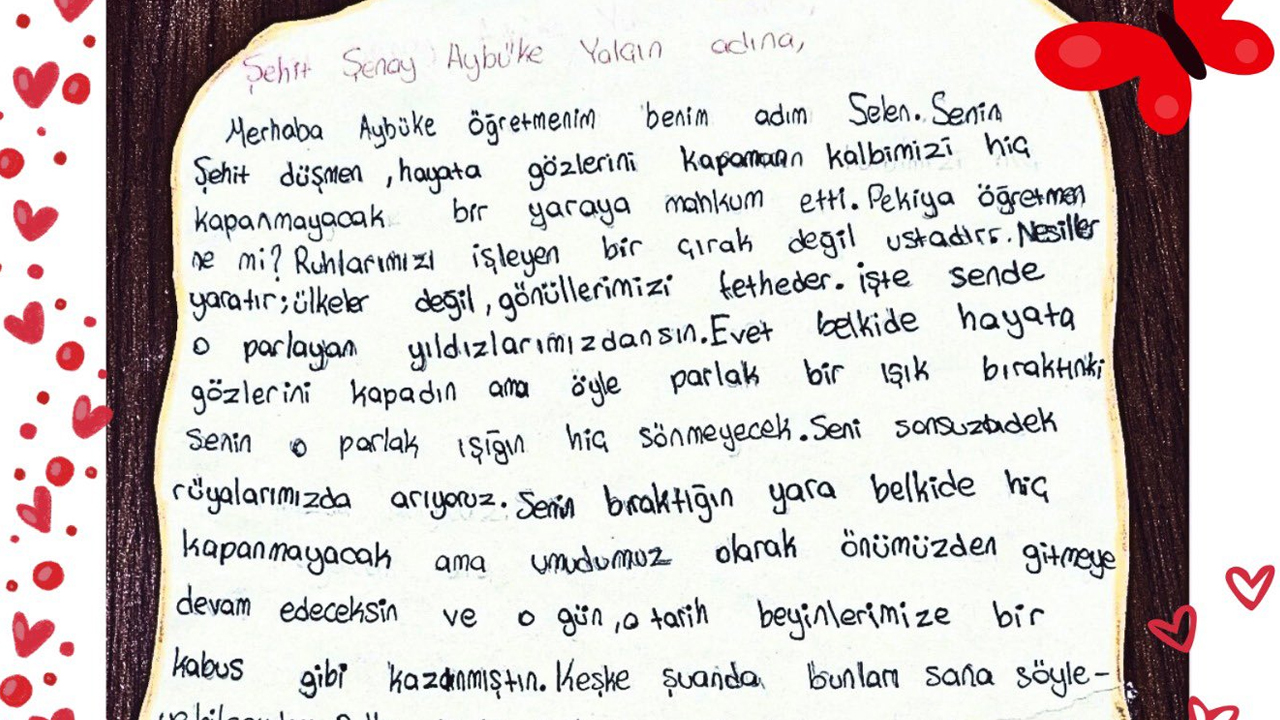 Şehit Şenay Aybüke Yalçın adına,
Merhaba Aybüke öğretmenim benim adım Selen. Senin
Şehit düşmen ,hayata gözlerini kapaman kalbimizi hiç
kapanmayacak bir yaraya mahkum etti. Pekiya öğretmen
ne mi? Ruhlarımızı işleyen bir çırak değil ustadırr. Nesiller
yaratır; ülkeler değil, gönüllerimizi fetheder. işte sende
o parlayan yıldızlarımızdansın. Evet belkide hayata
gözlerini kapadın ama öyle parlak bir ışık bıraktınki
senin o parlak ışığın hiç sönmeyecek. Seni sonsuzadek
rüyalarımızda arıyoruz. Senin bıraktığın yara belkide hiç
kapanmayacak ama umudumuz olarak önümüzden gitmeye
devam edeceksin ve o gün ,o tarih beyinlerimize bir
kabus gibi kazanmıştın. Keşke şuanda bunları sana söyle-